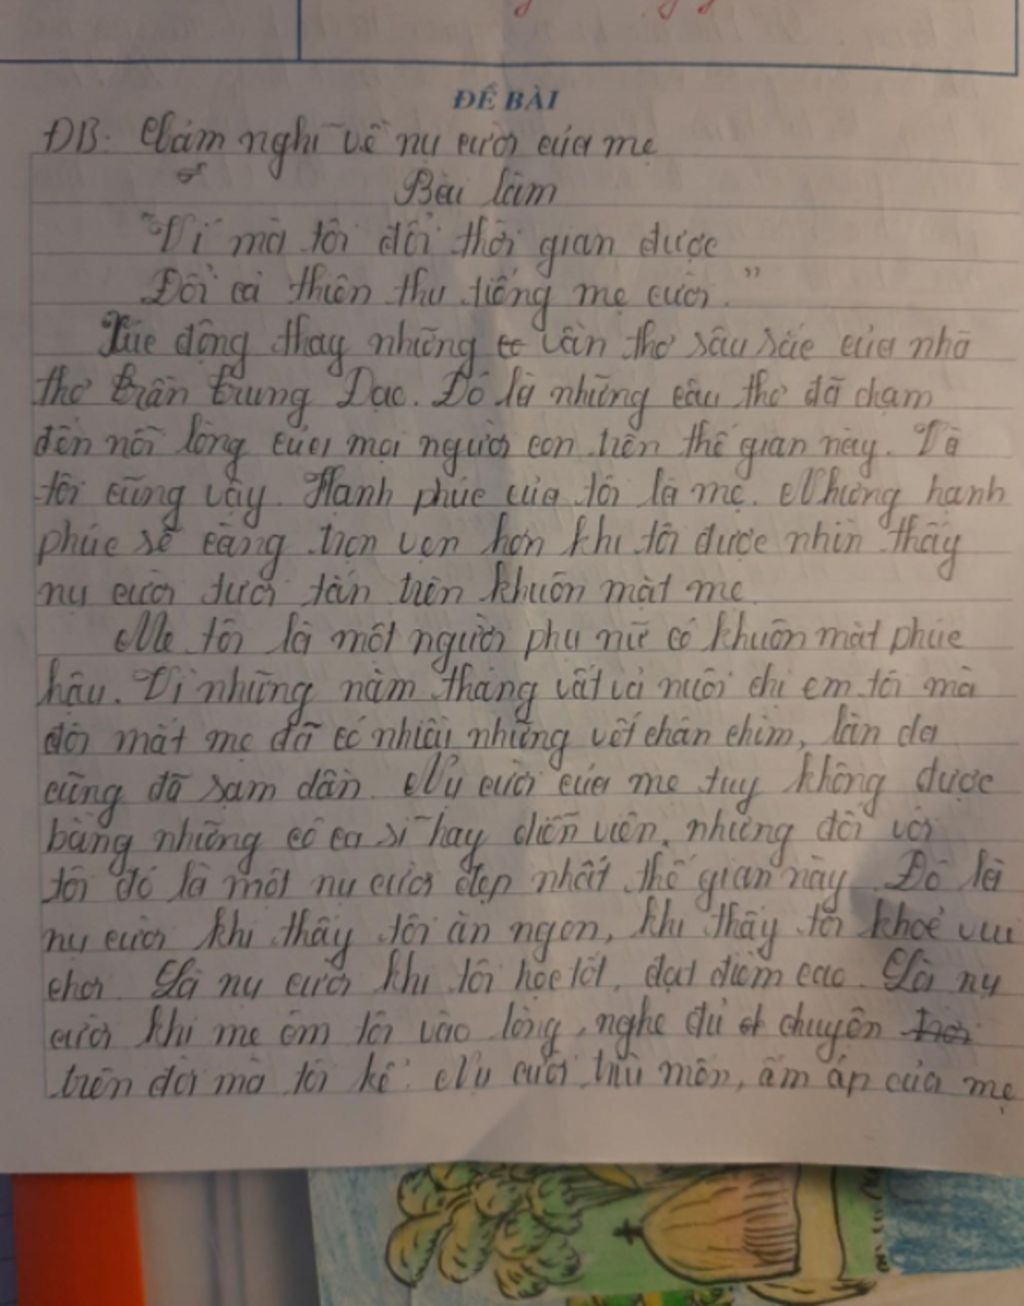 ĐỀ BÀI
ĐB: Cảm nghĩ về nụ cười của mẹ
Bài làm
"Ví mà tôi đổi thời gian được
Đổi cả thiên thu tiếng mẹ cười."
Xúc động thay những vần thơ sâu sắc của nhà
thơ Trần Trung Đạo. Đó là những câu thơ đã chạm
đến nỗi lòng của mọi người con trên thế gian này. Và
tôi cũng vậy. Hạnh phúc của tôi là mẹ. Nhưng hạnh
phúc sẽ càng trọn vẹn hơn khi tôi được nhìn thấy
nụ cười tươi tắn trên khuôn mặt mẹ.
Mẹ tôi là một người phụ nữ có khuôn mặt phúc
hậu. Vì những năm tháng vất vả nuôi chị em tôi mà
đôi mắt mẹ đã có nhiều những vết chân chim, làn da
cũng đã sạm dần. Nụ cười của mẹ tuy không được
bằng những cô ca sĩ hay diễn viên, nhưng đối với
tôi đó là một nụ cười đẹp nhất thế gian này. Đó là
nụ cười khi thấy tôi ăn ngon, khi thấy tôi khoẻ vui
chơi. Là nụ cười khi tôi học tốt, đạt điểm cao. Là nụ
cười khi mẹ ôm tôi vào lòng, nghe đủ chuyện
trên đời mà tôi kể. Nụ cười trìu mến, ấm áp của mẹ